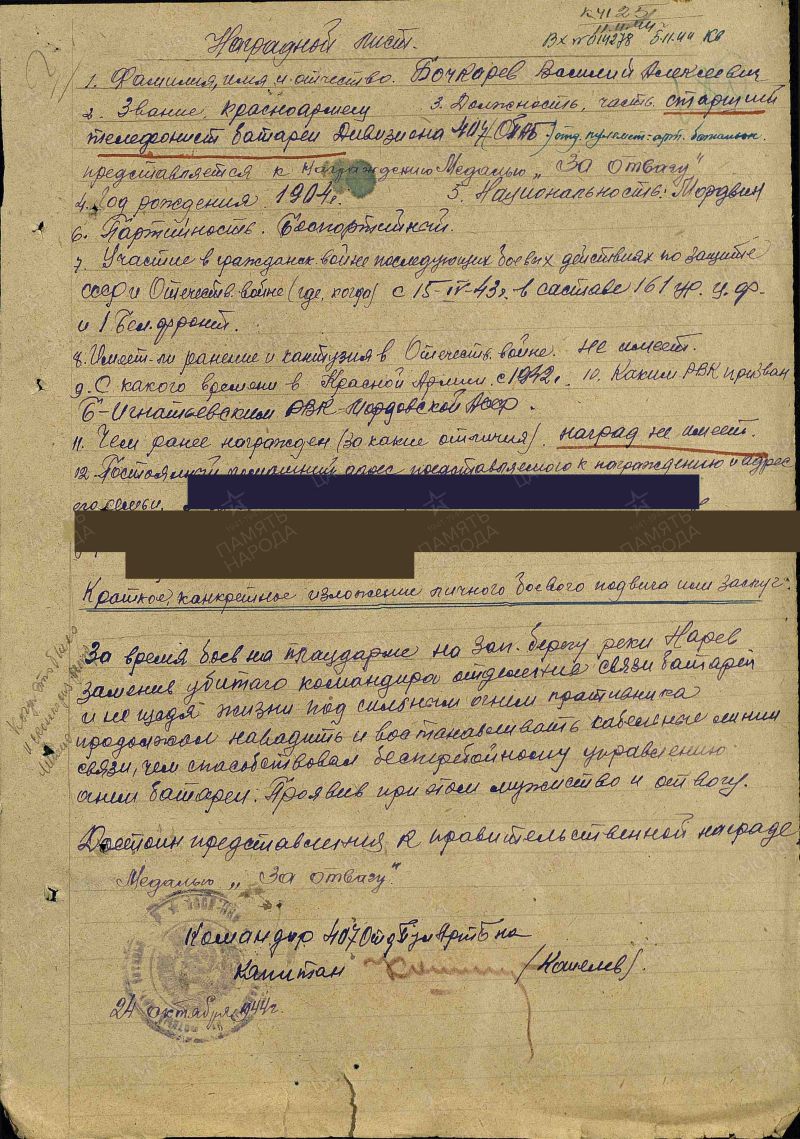 11.11.44
Вх № 014278 5-11-44
Наградной лист.
1. Фамилия, имя и отчество. Бочкарев Василий Алексеевич
2. Звание, красноармеец 3. Должность, часть. старший
телефонист батареи Дивизиона 407/ОПАБ отд. пулемет: арт. батальон.
представляется к награждению Медалью „За отвагу"
4. Год рождения 1904г. 5. Национальность: Мордвин
6. Партийность. Беспартийный.
7. Участие в гражданск. войне последующих боевых действиях по защите
СССР и Отечеств. войне (где, когда) с 15-IV-43г. в составе 161 ур. ц. ф.
и 1 Бел. фронт.
8. Имеет-ли ранение и кантузия в Отечеств. войне. не имеет.
9. С какого времени в Красной Армии. с 1942г. 10. Каким РВК призван
Б-Игнатьевским РВК-Мордовской Асср.
11. Чем ранее награжден (за какие отличия). наград не имеет.
12. Постоянный домашний адрес представляемого к награждению и адрес
его семьи.
ПАМЯТЬ НАРОДА
Краткое, канкретное изложение личного боевого подвига или заслуг:
За время боев на плацдарме на Зап. берегу реки Нарев
заменив убитого командира отделения связи батареи
и не щадя жизни под сильным огнем пративника
продолжал наводить и востанавливать кабельные линии
связи, чем способствовал бесперебойному управлению
огнем батареи. Проявив при этом мужиство и отвогу.
Достоин представления к правительственной награде
Медалью „За отвагу".
Командир 407 Отд Пул Арт Б на
Капитан (Кошелев).
24 октября 1944г.